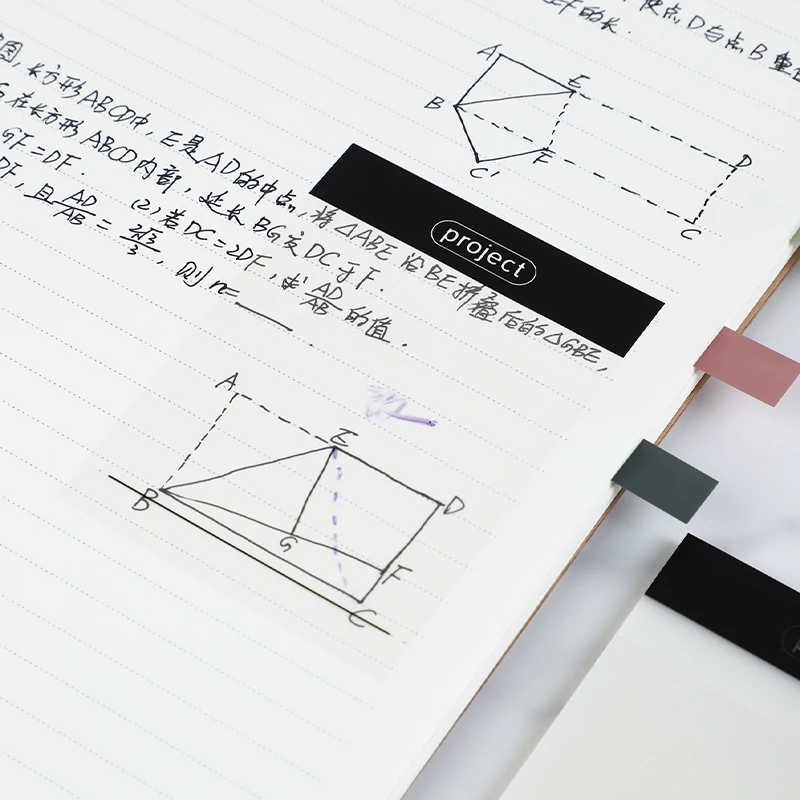 使点D与点B重合
EF的长.
A
E
B
F
C'
D
C
图,长方形ABCD中,E是AD的中点,将△ABE沿BE折叠后的△GBE,
G在长方形ABCD内部,延长BG交DC于F.
GF=DF. (2)若DC=2DF,求AD/AB的值.
DF,且AD/AB=2√3/3,则n=____.
project
A
E
D
B
G
F
C